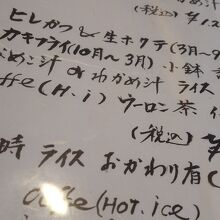 (税込)
ヒレかつ & 生ホタテ(3月~
カキフライ(10月~3月) 小鉢
めこ汁 or わかめ汁 ライス
ffee(H.i) ウーロン茶
(税込)
時 ライス おかわり有(
Coffee(HOT.ice)